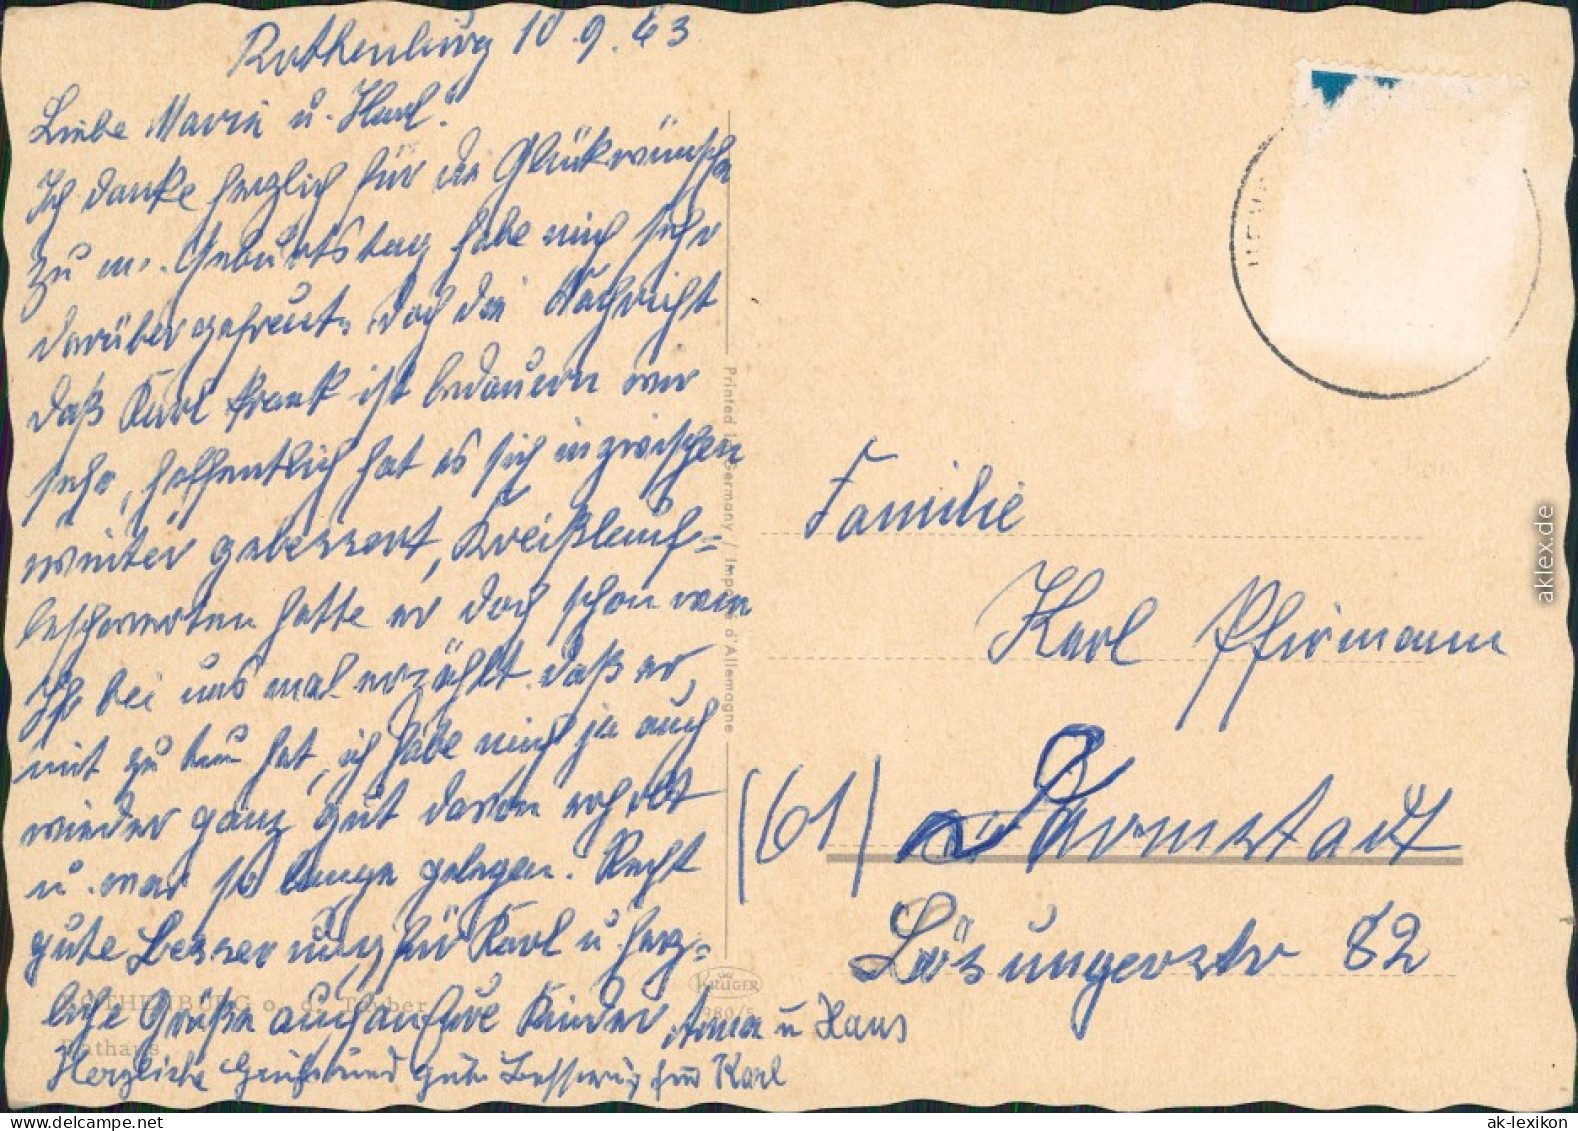 Rothenburg 10.9.63
Liebe Maria u. Karl!
Ich danke herzlich für die Glückwünsche
zu m. Geburtstag habe mich sehr
darüber gefreut. doch die Nachricht
daß Karl krank ist bedauern wir
sehr, hoffentlich hat es sich inzwischen
weiter gebessert, Kreißlauf=
beschwerden hatte er doch schon wie
Ihr bei uns mal erzählt daß er
mit zu tun hat, ich habe mich ja auch
wieder ganz gut davon erholt
u. war so lange gelegen. Recht
gute Besserung für Karl u. herz=
liche Grüße auch an Eure Kinder Anna u Hans
Herzliche und gute Besserung für Karl
ROTHENBURG o. d. Tauber
Rathaus
Printed in Germany / Imprimé d'Allemagne
KRÜGER
980/5
Familie
Karl Pfirmann
(61) Darmstadt
Lösungerstr 82
aklex.de
www.ak-ansichtskarten.de
ak-lexikon